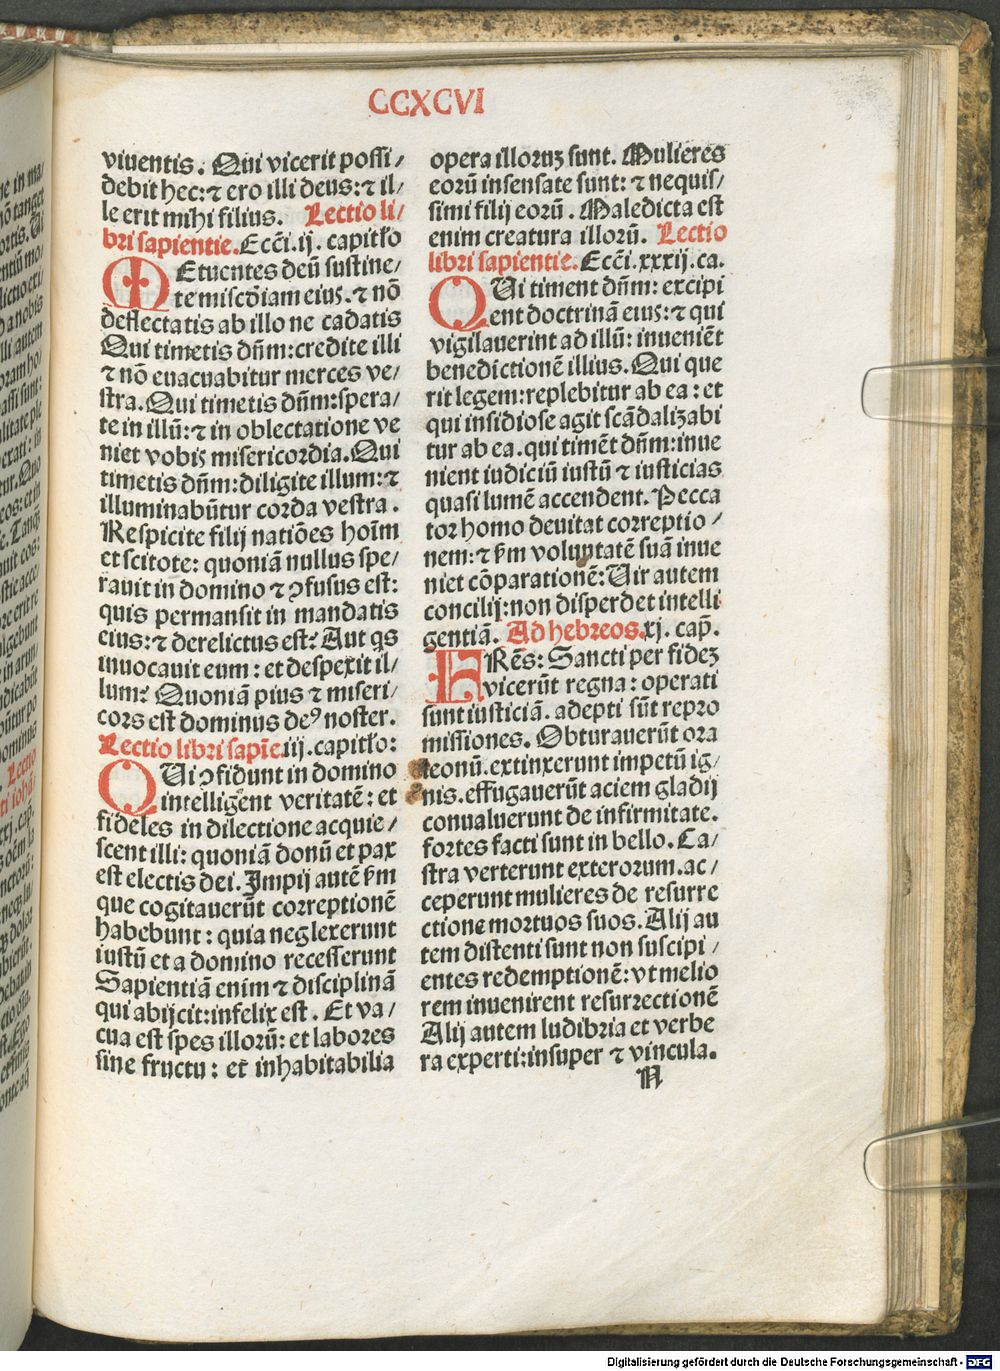 CCXCVI
viuentis. Qui vicerit possi/
debit hec: ⁊ ero illi deus: ⁊ il/
le erit mihi filius. Lectio li/
bri sapientie. Ecči. ij. capitło
MEtuentes deū sustine/
te miscōiam eius. ⁊ nō
deflectatis ab illo ne cadatis
Qui timetis dn̄m: credite illi
⁊ nō euacuabitur merces ve/
stra. Qui timetis dn̄m: spera/
te in illū: ⁊ in oblectatione ve
niet vobis misericordia. Qui
timetis dn̄m: diligite illum: ⁊
illuminabūtur corda vestra.
Respicite filij natiōes hoīm
et scitote: quoniā nullus spe/
rauit in domino ⁊ ꝯfusus est:
quis permansit in mandatis
eius: ⁊ derelictus est? Aut qs
inuocauit eum: et despexit il/
lum? Quoniā pius ⁊ miseri/
cors est dominus deꝰ noster.
Lectio libri sapīe. iij. capitło:
QUi ꝯfidunt in domino
intelligēnt veritatē: et
fideles in dilectione acquie/
scent illi: quoniā donū et pax
est electis dei. Impij autē ẜm
que cogitauerūt correptionē
habebunt: quia neglexerunt
iustū et a domino recesserunt
Sapientiā enim ⁊ disciplinā
qui abijcit: infelix est. Et va/
cua est spes illorū: et labores
sine fructu: et inhabitabilia
opera illoruꝫ sunt. Mulieres
eorū insensate sunt: ⁊ nequis/
simi filij eorū. Maledicta est
enim creatura illorū. Lectio
libri sapientie. Ecči. xxxij. ca.
QUi timent dn̄m: excipi
ent doctrinā eius: ⁊ qui
vigilauerint ad illū: inueniēt
benedictionē illius. Qui que
rit legem: replebitur ab ea: et
qui insidiose agit scādalizabi
tur ab ea. qui timēt dn̄m: inue
nient iudiciū iustū ⁊ iusticias
quasi lumē accendent. Pecca
tor homo deuitat correptio/
nem: ⁊ ẜm voluntatē suā inue
niet cōparationē: Uir autem
concilij: non disperdet intelli
gentiā. Ad hebreos. xj. cap̄.
FRēs: Sancti per fideꝫ
vicerūt regna: operati
sunt iusticiā. adepti sūt repro
missiones. Obturauerūt ora
leonū. extinxerunt impetū ig/
nis. effugauerūt aciem gladij
conualuerunt de infirmitate.
fortes facti sunt in bello. Ca/
stra verterunt exterorum. ac/
ceperunt mulieres de resurre
ctione mortuos suos. Alij au
tem distenti sunt non suscipi/
entes redemptionē: vt melio
rem inuenirent resurrectionē
Alij autem ludibria et verbe
ra experti: insuper ⁊ vincula.
N
Digitalisierung gefördert durch die Deutsche Forschungsgemeinschaft - DFG